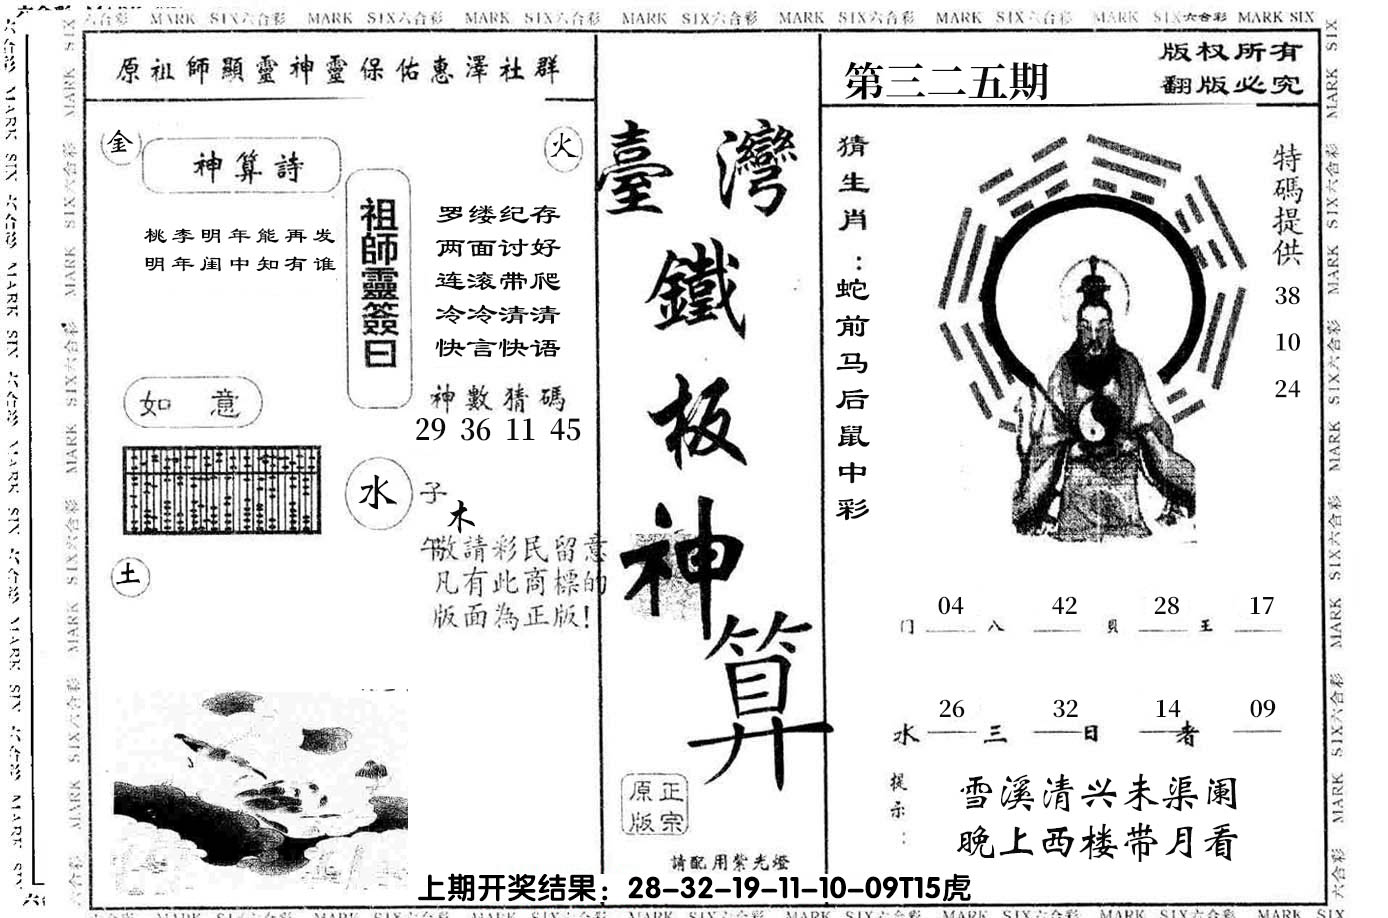 六合彩 MARK SIX六合彩 MARK SIX六合彩 MARK SIX六合彩 MARK SIX六合彩 MARK SIX六合彩 MARK SIX六合彩 MARK SIX六合彩 MARK SIX
原祖師顯靈神靈保佑惠澤社群
金
神算詩
火
桃李明年能再发
明年闺中知有谁
祖師靈簽曰
罗缕纪存
两面讨好
连滚带爬
冷冷清清
快言快语
神數猜碼
29 36 11 45
如 意
水
子
木
午
敬請彩民留意
凡有此商標的
版面為正版!
土
臺灣
鐵
板
神
算
正宗
原版
請配用紫光燈
第三二五期
版权所有
翻版必究
猜生肖:蛇前马后鼠中彩
特碼提供
38
10
24
04 42 28 17
门 八 贝 王
26 32 14 09
水 三 日 者
提示:
雪溪清兴未渠阑
晚上西楼带月看
上期开奖结果：28-32-19-11-10-09T15虎